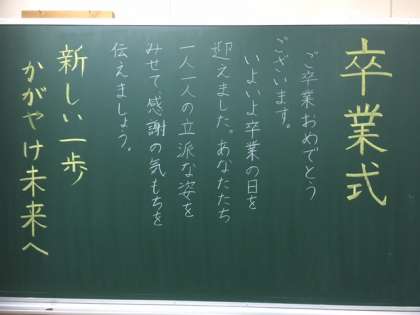 卒業式
ご卒業おめでとう
ございます。
いよいよ卒業の日を
迎えました。あなたたち
一人一人の立派な姿を
みせて、感謝の気もちを
伝えましょう。
新しい一歩
かがやけ未来へ